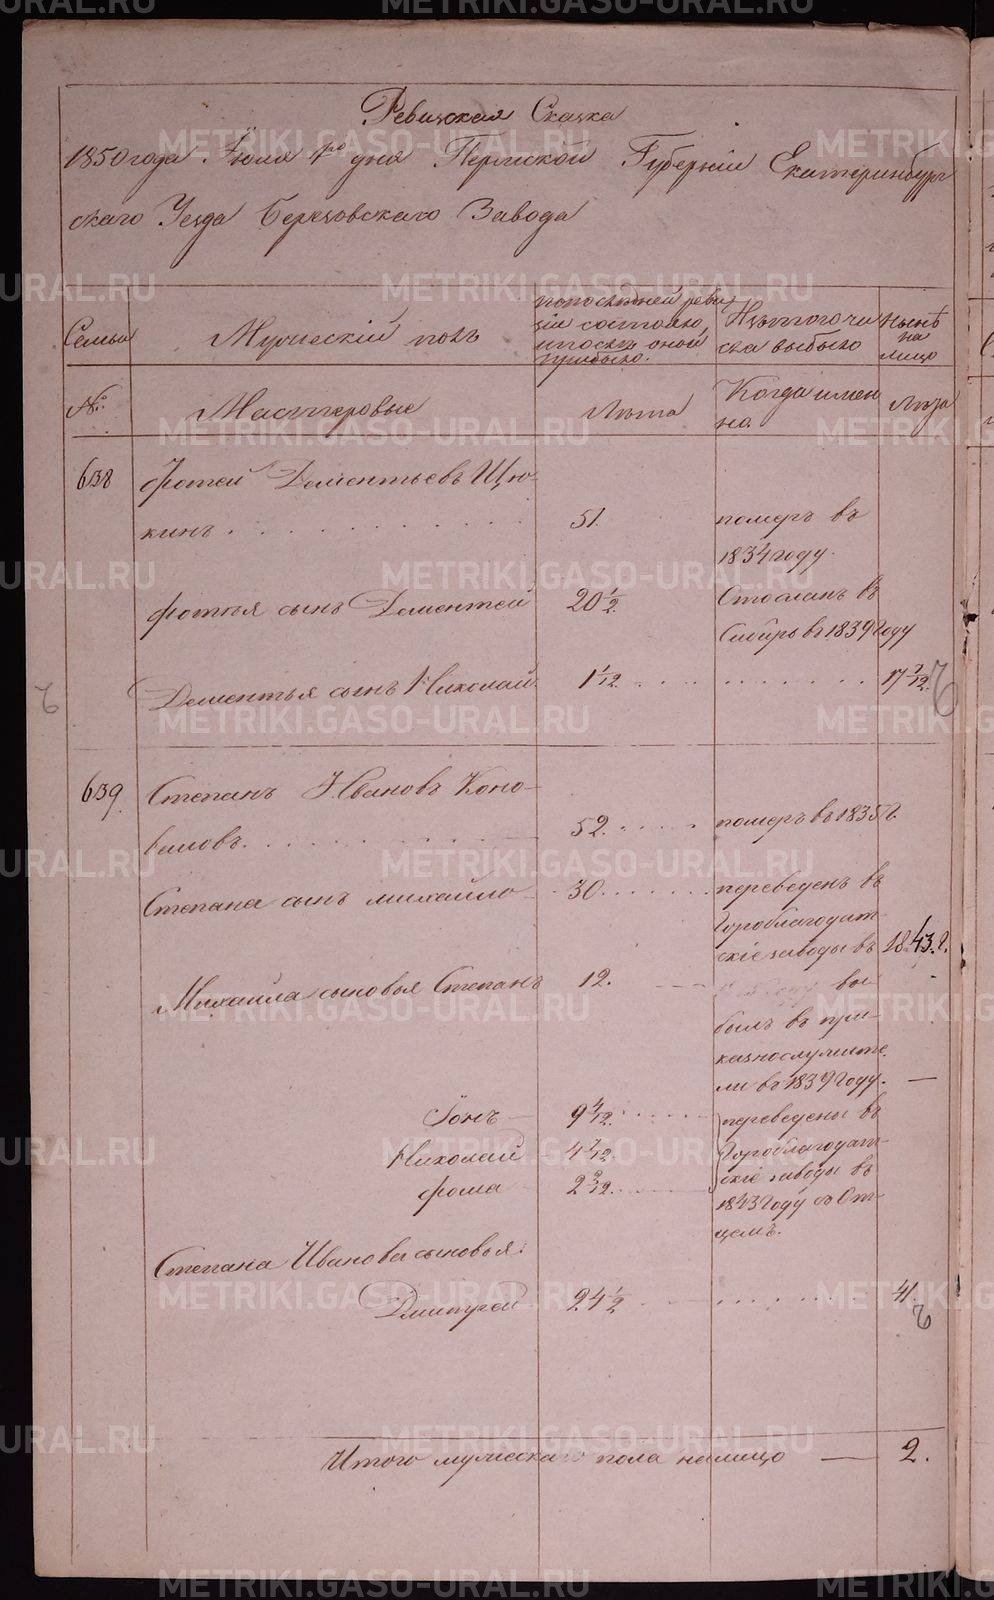 Ревизская Сказка
1850 года Июля 1го дня Пермской Губернiи Екатеринбург
скаго Уезда Березовскаго Завода
Семьи
Мужескiй полъ
по последней реви
зiи состояло,
и после оной
прибыло.
Изъ того чи
сла выбыло
Ныне
на
лицо
№.
Мастеровые
Лета
Когда имен
но.
Лета
638
Фотей Дементьевъ Щю-
кинъ
51.
померъ въ
1834 году.
Фотея сынъ Дементей
20 1/2.
Сосланъ въ
Сибирь въ 1839 году
Дементья сынъ Николай.
1 1/12.
17 7/12.
639.
Степанъ Ивановъ Коно-
валовъ.
52.
померъ въ 1835 г.
Степана сынъ Михайло
30.
переведенъ въ
Гороблагодат-
скiе заводы въ 1843. г.
Михайла сыновья Степанъ
12.
вы
былъ въ при-
казнослужите
ли въ 1839 году. —
Iонъ
9 4/12.
переведены въ
Николай
4 7/12.
Гороблагодат-
Фома
2 2/12.
скiе заводы въ
1843 году съ От-
цемъ.
Степана Иванова сыновья:
Дмитрей
24 1/2
41.
Итого мужескаго пола налицо — 2.
METRIKI.GASO-URAL.RU